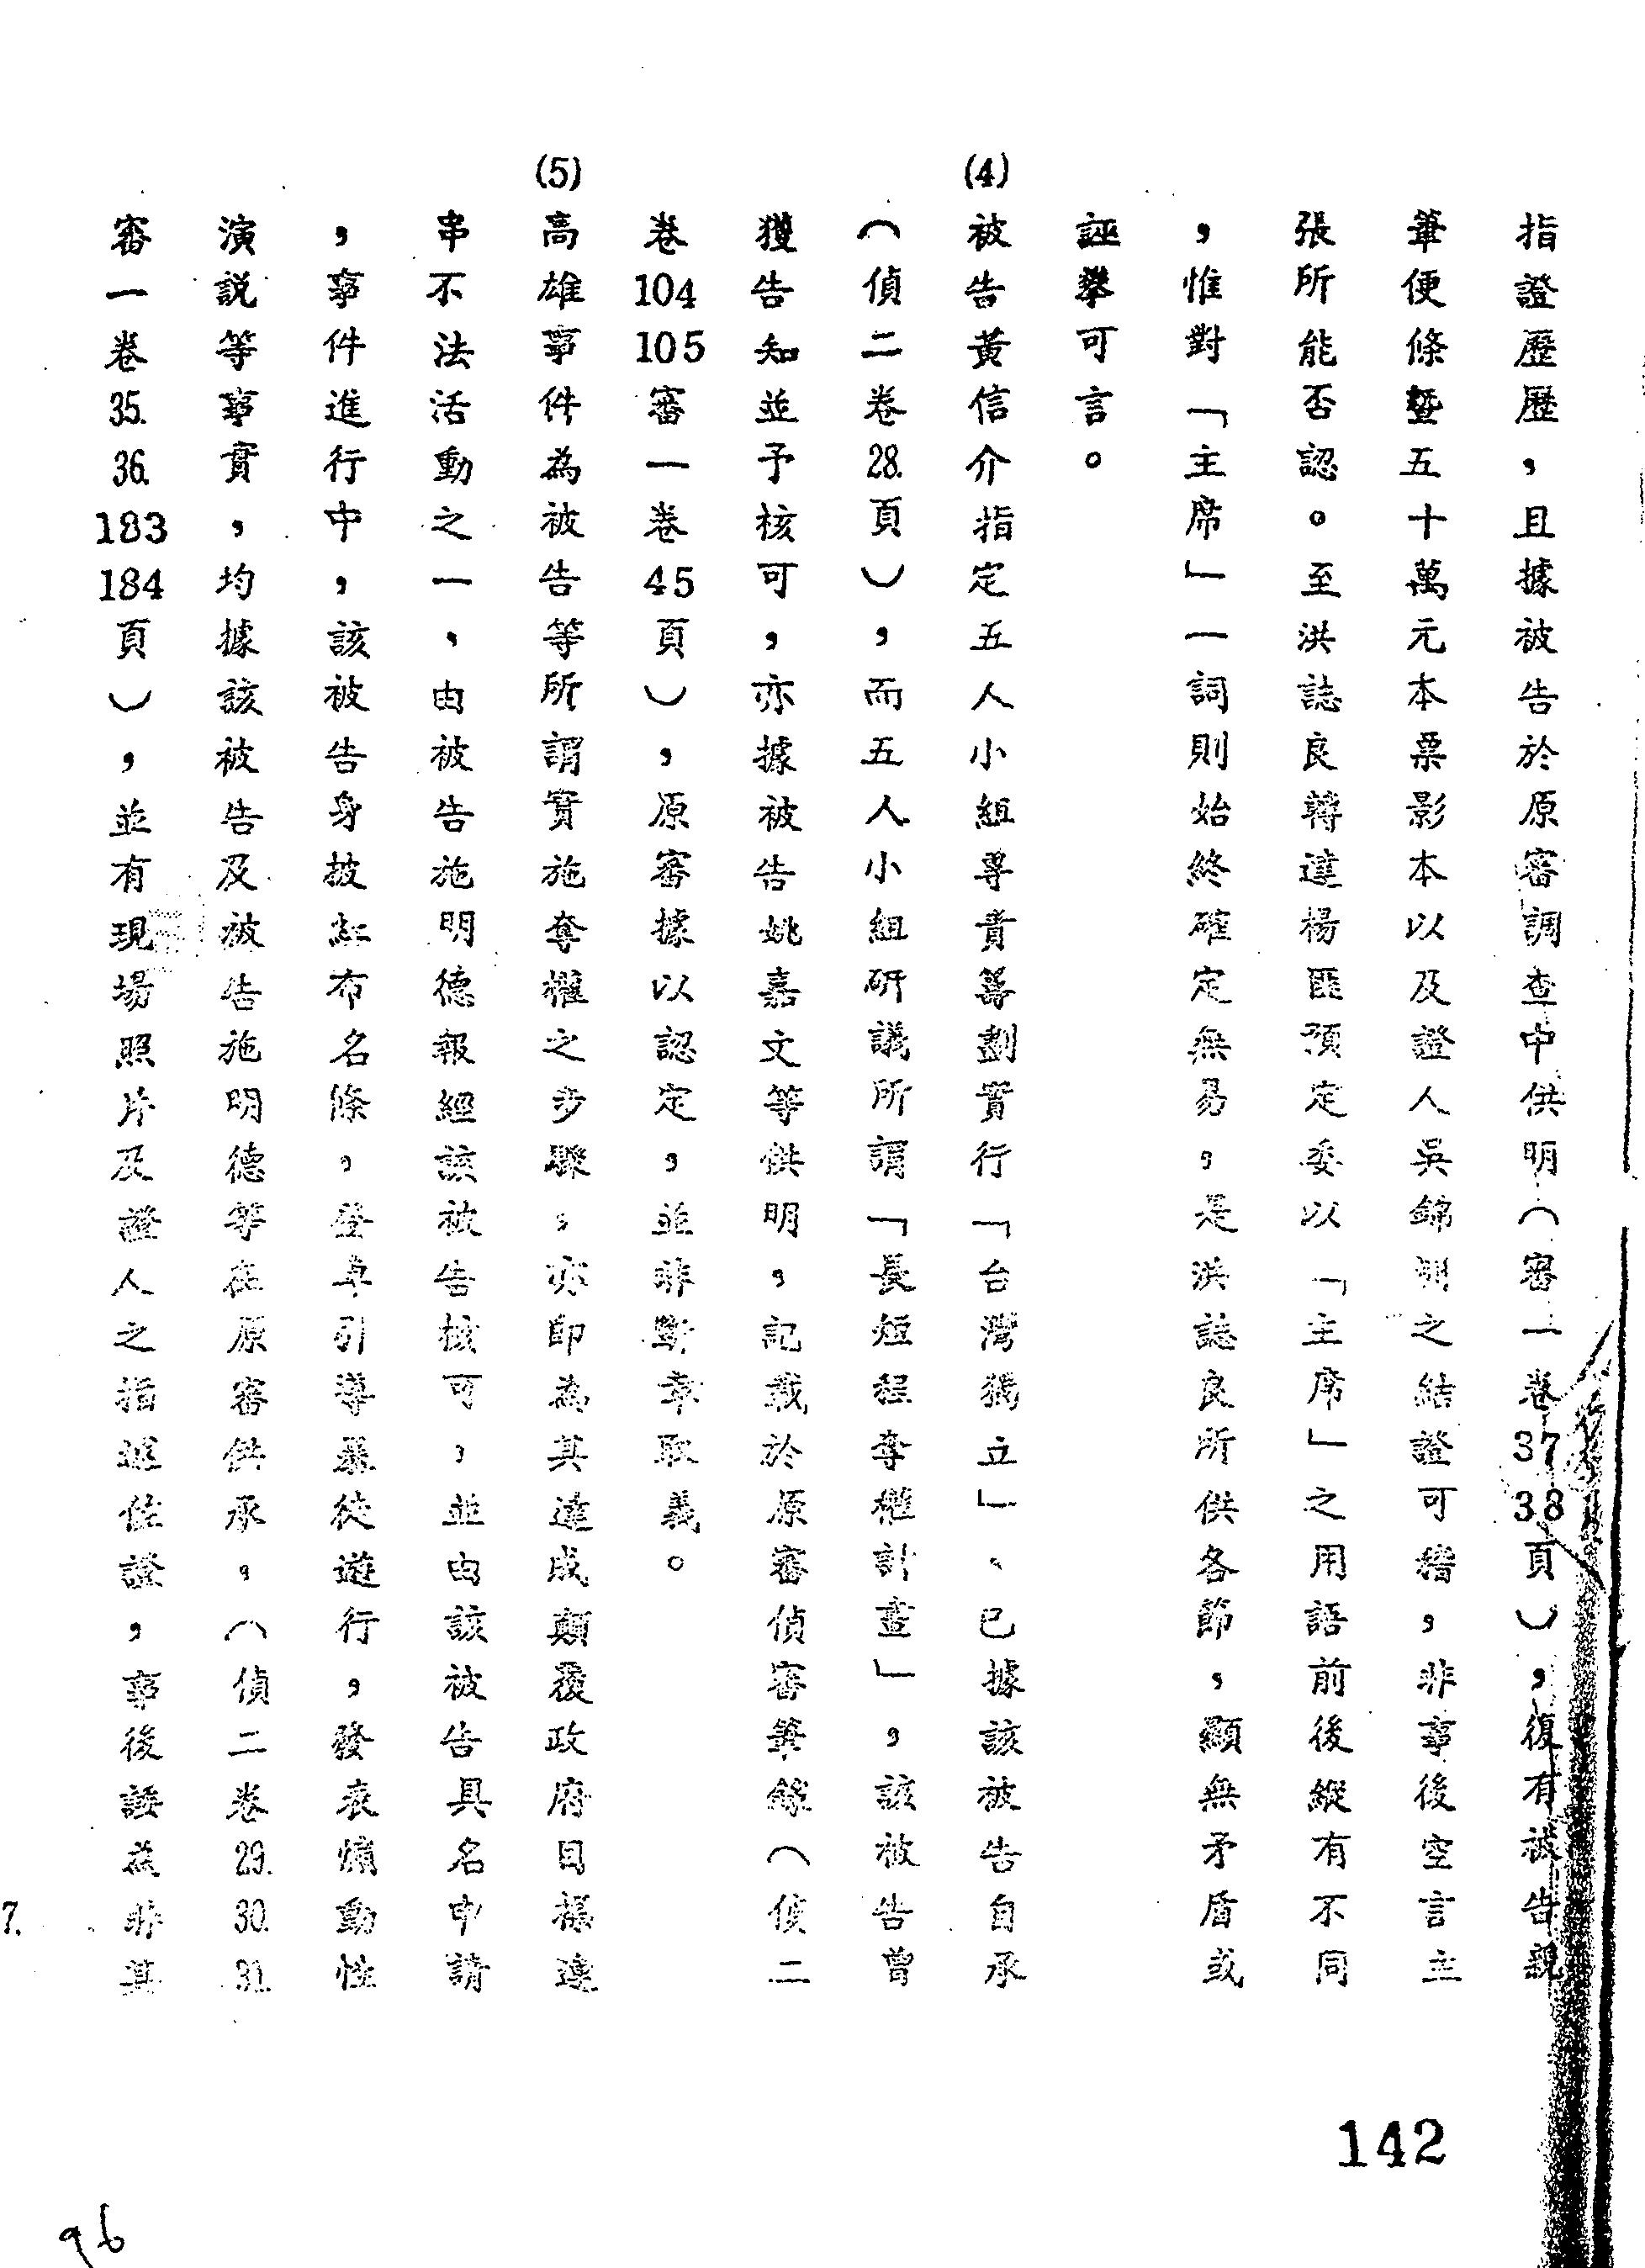 指證歷歷，且據被告於原審調查中供明（審一卷37 38頁），復有被告親
筆便條暨五十萬元本票影本以及證人吳錦洲之結證可稽，非事後空言主
張所能否認。至洪誌良轉達楊匪預定委以「主席」之用語前後縱有不同
，惟對「主席」一詞則始終確定無易，是洪誌良所供各節，顯無矛盾或
誣攀可言。
(4)被告黃信介指定五人小組專責籌劃實行「台灣獨立」、已據該被告自承
（偵二卷28.頁），而五人小組研議所謂「長短程奪權計畫」，該被告曾
獲告知並予核可，亦據被告姚嘉文等供明，記載於原審偵審筆錄（偵二
卷104 105審一卷45頁），原審據以認定，並非斷章取義。
(5)高雄事件為被告等所謂實施奪權之步驟，亦即為其達成顛覆政府目標連
串不法活動之一、由被告施明德報經該被告核可，並由該被告具名申請
，事件進行中，該被告身披紅布名條，登車引導暴徒遊行，發表煽動性
演說等事實，均據該被告及被告施明德等在原審供承。（偵二卷29. 30. 31.
審一卷35. 36. 183 184頁），並有現場照片及證人之指述佐證，事後諉為非其
7.
142
96